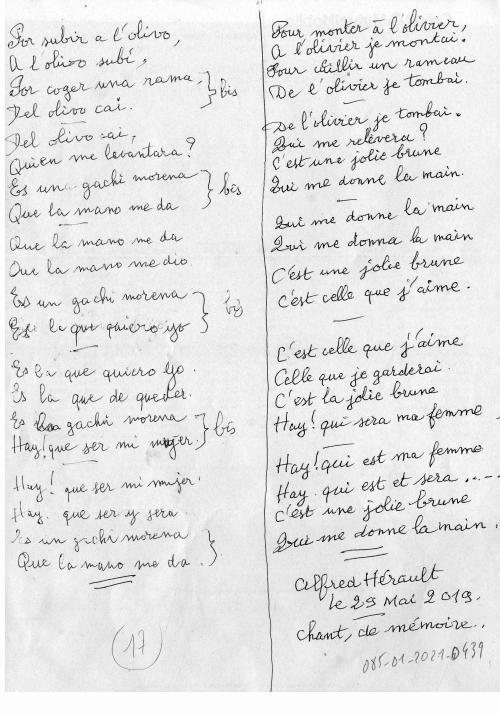 Por subir a l'olivo,
A l'olivo subí,
Por coger una rama } bis
Del olivo cai.
Del olivo cai,
Quien me levantara?
Es una gachi morena } bis
Que la mano me da
Que la mano me da
Que la mano me dio
Es un gachi morena } bis
Es la que quiero yo
Es la que quiero yo.
Es la que de queder.
Es gachi morena } bis
Hay! que ser mi mujer.
Hay! que ser mi mujer.
Hay. que ser y sera
Es un gachi morena
Que la mano me da. }
17
Pour monter à l'olivier,
A l'olivier je montai.
Pour cueillir un rameau
De l'olivier je tombai.
De l'olivier je tombai.
Qui me relèvera?
C'est une jolie brune
Qui me donne la main.
Qui me donne la main
Qui me donna la main
C'est une jolie brune
C'est celle que j'aime.
C'est celle que j'aime
Celle que je garderai.
C'est la jolie brune
Hay! qui sera ma femme.
Hay! qui est ma femme
Hay. qui est et sera .....
C'est une jolie brune
Qui me donne la main.
Alfred Hérault
le 29 Mai 2019.
chant, de mémoire..
085-01-2021-0439